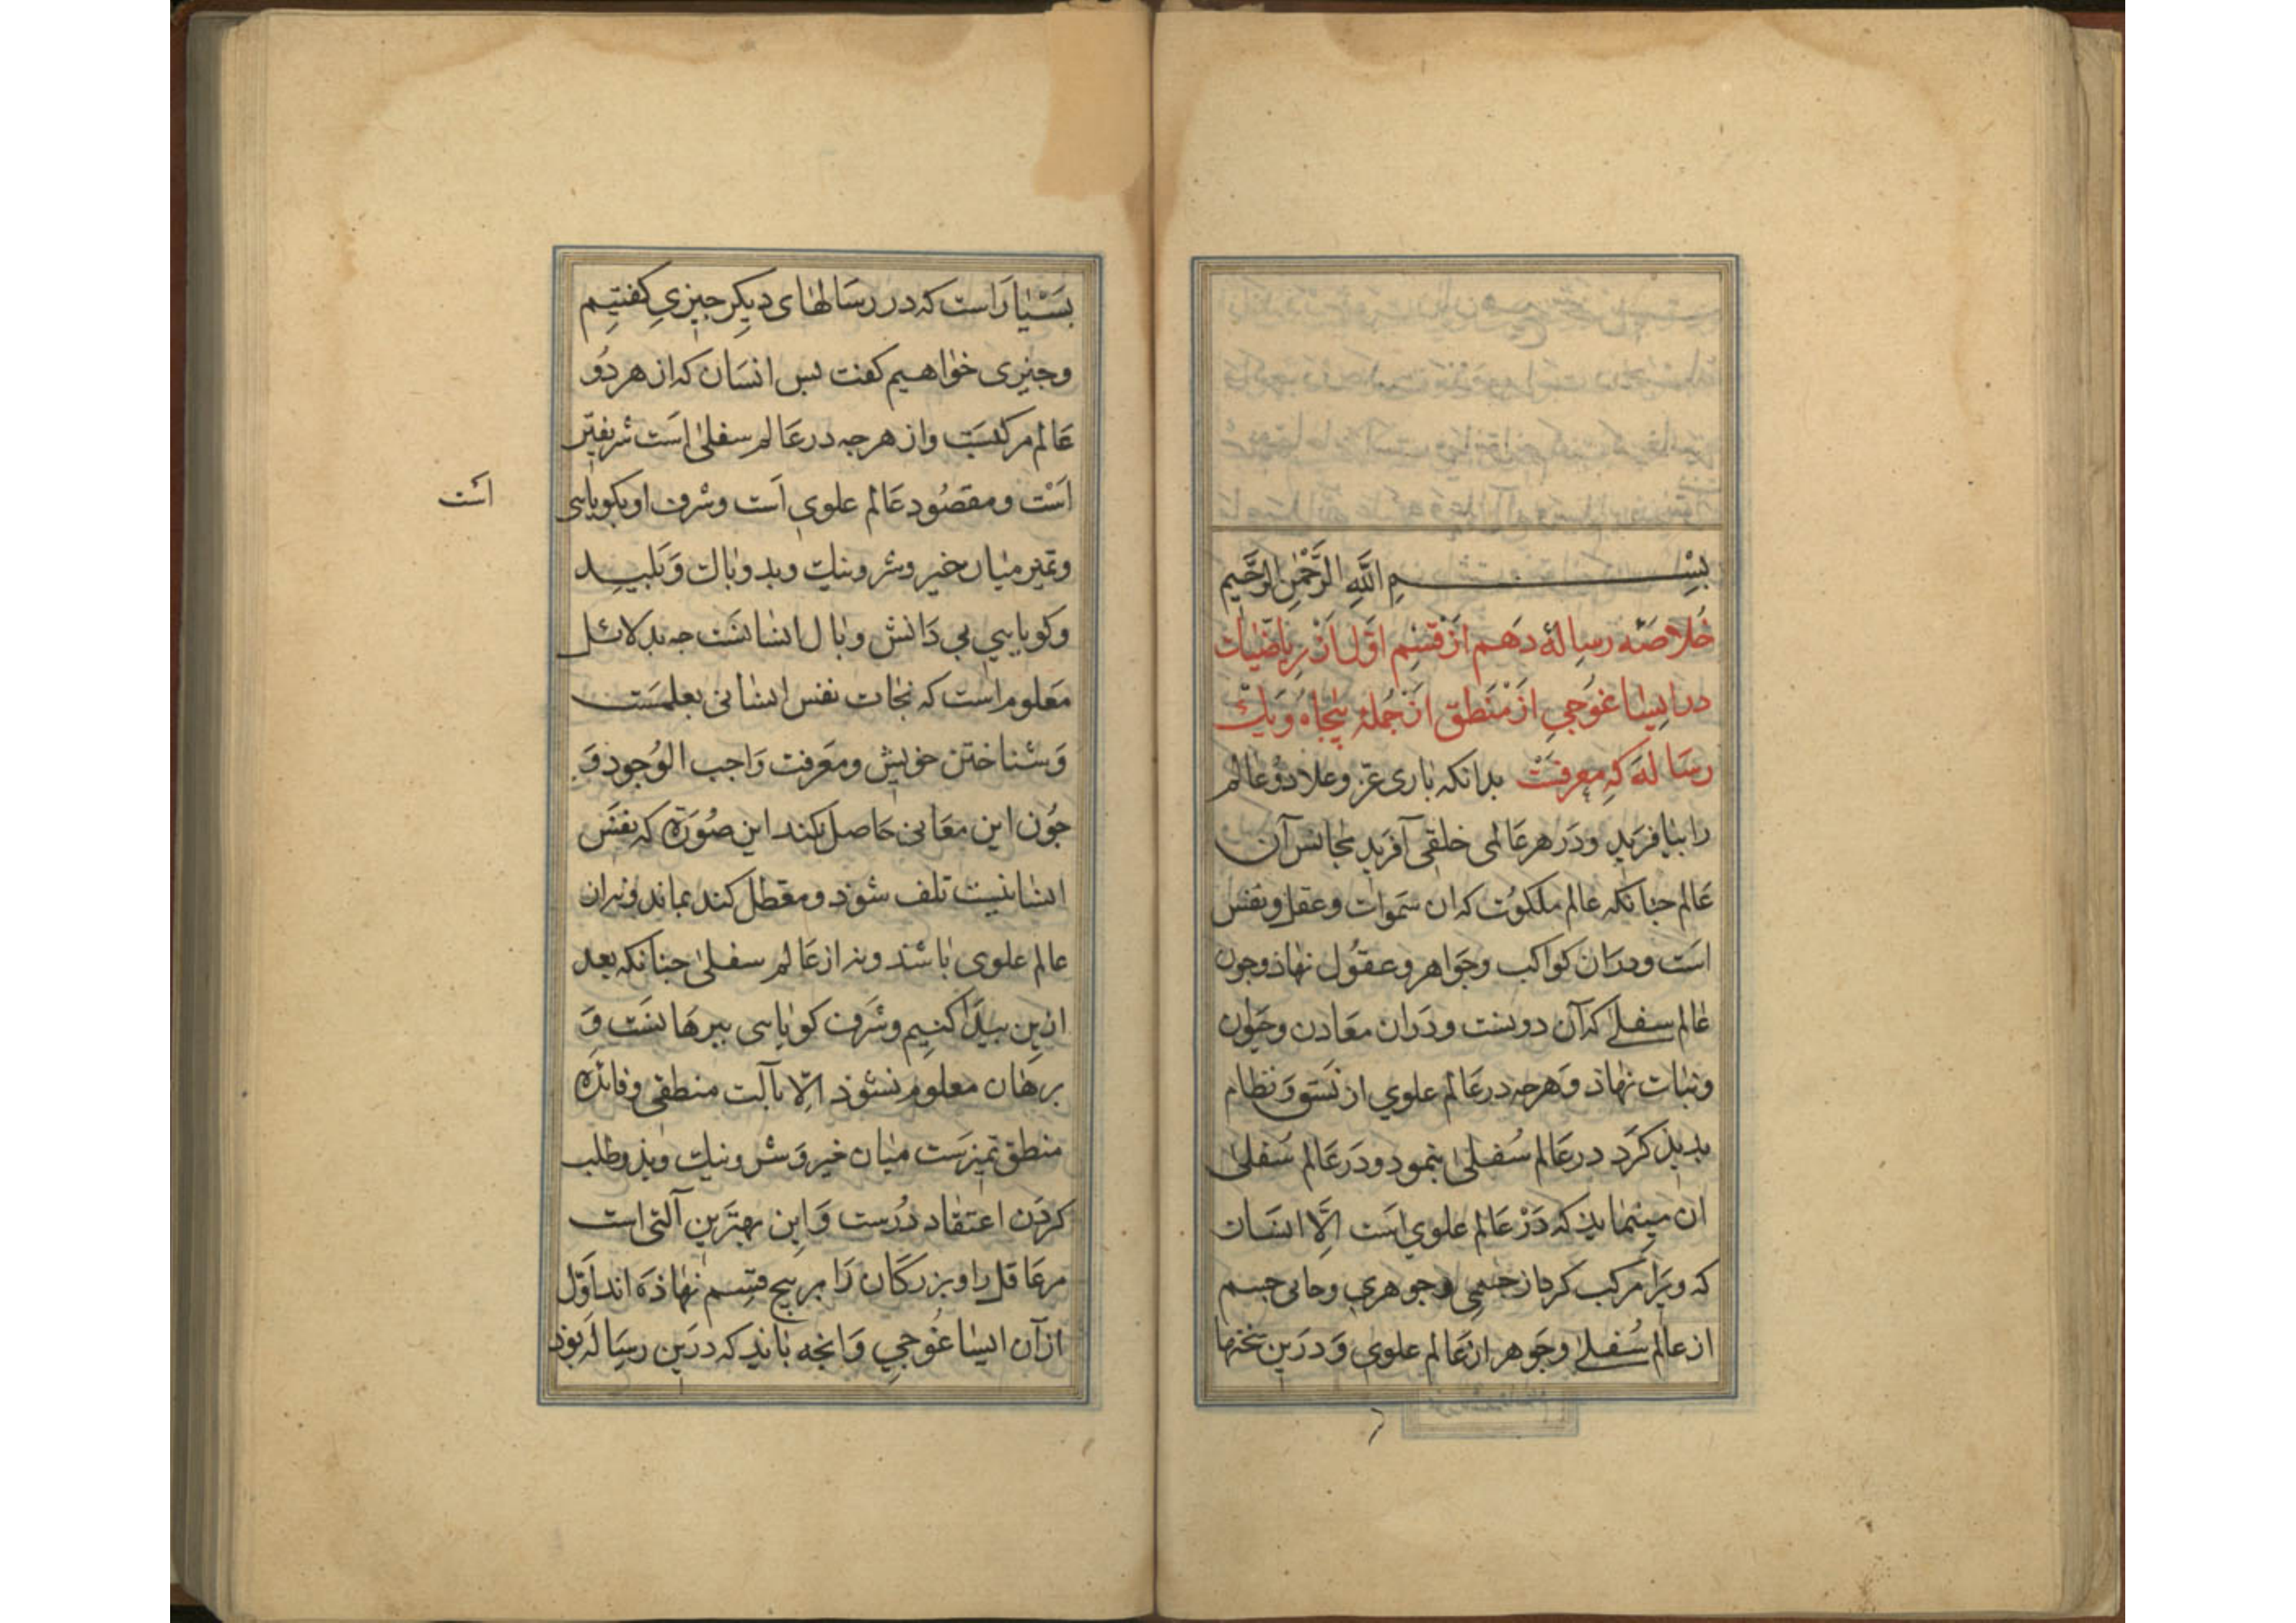 بسم الله الرحمن الرحيم
خلاصه رسالهٔ دهم از قسم اول از رياضيات
در ايساغوجي از منطق از جملهٔ پنجاه و يك
رساله كه معرفت بدانكه بارى عز وعلا دو عالم
را بيافريد ودر هر عالمى خلقى آفريد مجانس آن
عالم جنانكه عالم ملكوت كه ان سموات وعقل ونفس
است ودران كواكب وجواهر وعقول نهاذ وجون
عالم سفلى كه آن دونست ودران معادن وحيوان
ونبات نهاذ وهرجه در عالم علوي از نسق ونظام
بديذ كرد در عالم سفلى بنمود ودر عالم سفلى
ان مينمايذ كه در عالم علوي است الّا انسان
كه ويرا مركب كرد از جسمى وجوهري وحانى جسم
از عالم سفلى وجوهر از عالم علوي ودرين سخنها
بسيار است كه در رسالهاى ديكر جيزي كفتيم
وجيزى خواهيم كفت بس انسان كه از هر دو
عالم مركبست واز هرجه در عالم سفلى است شريفتر
است ومقصود عالم علوي است وشرف او بكويايى
است
وتميز ميان خير وشر ونيك وبد وباك وبليد
وكويايي بي دانش وبال انسانست جه بدلائل
معلوم است كه نجات نفس انسانى بعلمست
وشناختن خويش ومعرفت واجب الوجود و
جون اين معانى حاصل نكند اين صورة كه نفس
انسانيست تلف شوذ ومعطل كند بماند ونه از ان
عالم علوى باشد ونه از عالم سفلى جنانكه بعد
ازين بيدا كنيم وشرف كويايى ببرهانست و
برهان معلوم نشوذ الّا بآلت منطقى وفائدهٔ
منطق تميزست ميان خير وشر ونيك وبد وطلب
كردن اعتقاد درست واين بهترين آلتى است
مر عاقل را وبزركان را بر بنج قسم نهاذه اند اول
از آن ايساغوجي وانجه بايد كه درين رساله بوذ